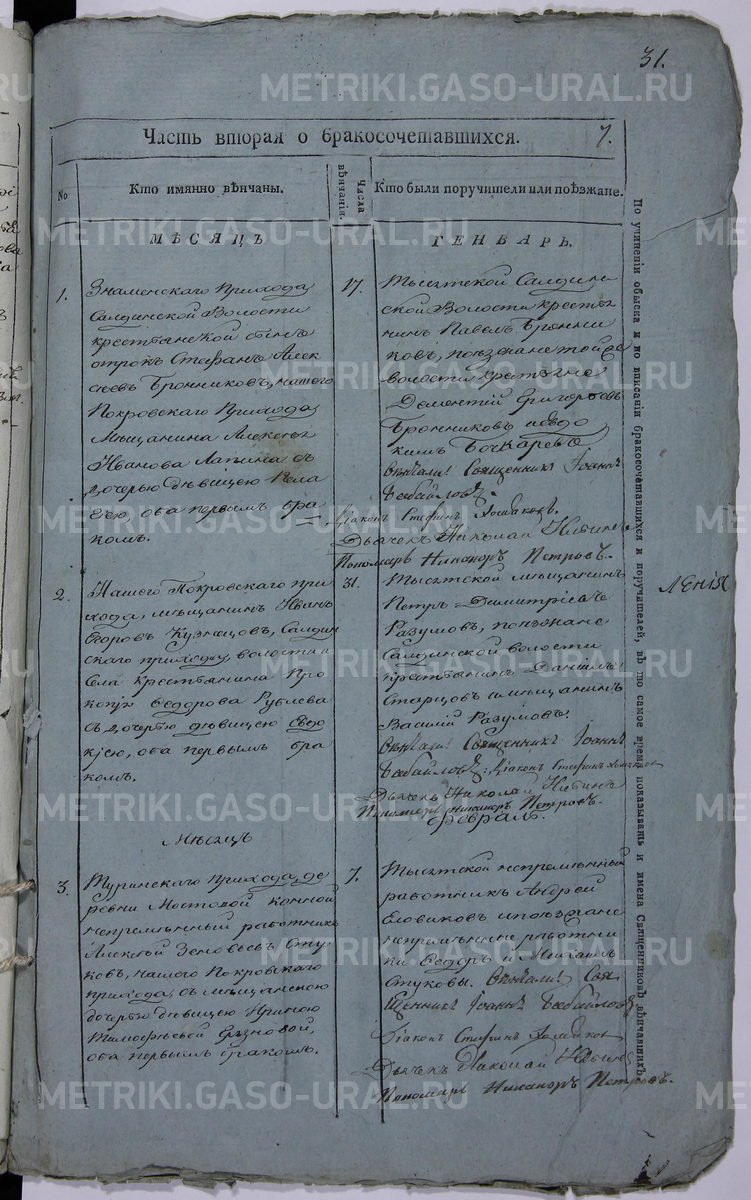 31.
Часть вторая о бракосочетавшихся.
7.
№
Кто имянно вѣнчаны.
Числа вѣнчанія.
Кто были поручители или поѣзжане.
МѢСЯЦЪ
ГЕНВАРЬ.
1.
Знаменскаго Прихода
Салдинской Волости
крестьянской сынъ
отрокъ Стефанъ Алек
сѣевъ Бронниковъ, нашего
Покровскаго Прихода
Мѣщанина Алексѣя
Иванова Лапина съ
дочерью дѣвицею Пела
геею, оба первымъ бра
комъ.
17.
Тысятской Салдин
ской Волости крестья
нинъ Павелъ Бронни
ковъ, поѣзжане той же
волости крестьяне
Дементій Григорьевъ
Бронниковъ
Бочкаревъ
Вѣнчали: Священникъ Іоаннъ
Бабайловъ
Діаконъ Стефанъ
Дьячекъ Николай
Пономарь Никаноръ Петровъ.
2.
Нашего Покровскаго при
хода, мѣщанинъ Иванъ
Егоровъ Кузнецовъ, Салдин
скаго прихода, волости и
села крестьянина Про
копія Ѳедорова Рублева
съ дочерью дѣвицею Евдо
кіею, оба первымъ бра
комъ.
31.
Тысятской мѣщанинъ
Петръ Димитріевъ
Разумовъ, поѣзжане
Салдинской волости
крестьянинъ Даніилъ
Старцовъ и мѣщанинъ
Василій Разумовъ.
Вѣнчали: Священникъ Іоаннъ
Бабайловъ: Діаконъ Стефанъ
Дьячекъ Николай
Пономарь Никаноръ Петровъ.
Мѣсяцъ
Февраль.
3.
Туринскаго прихода, де
ревни Мостовой конной
непремѣнный работникъ
Алексѣй Зеновьевъ Сту
ковъ, нашего Покровскаго
прихода, съ мѣщанскою
дочерью дѣвицею Ириною
Тимофѣевой
оба первымъ бракомъ.
7.
Тысятской непремѣнный
работникъ Андрей
и поѣзжане
непремѣнные работни
ки Ѳедоръ и Михаилъ
Стуковы. Вѣнчали: Свя
щенникъ Іоаннъ Бабайловъ
Діаконъ Стефанъ
Дьячекъ Николай
Пономарь Никаноръ Петровъ.
По учиненіи обыска и по вписаніи бракосочетавшихся и поручителей, въ то самое время показывать и имена Священниковъ вѣнчавшихъ.
METRIKI.GASO-URAL.RU